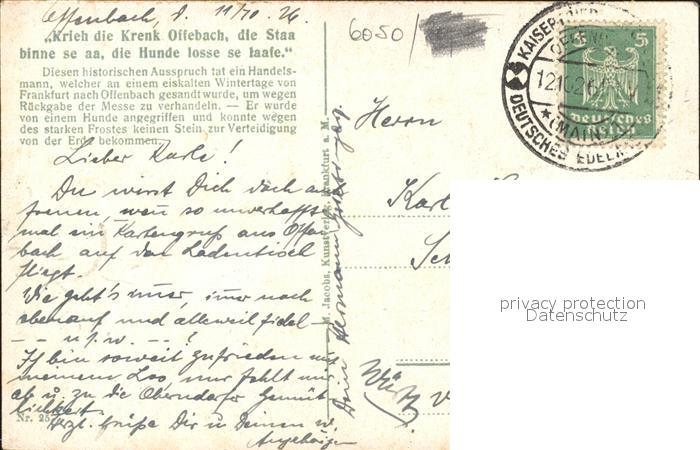 Offenbach, d. 11/10. 26.
6050/
„Krieh die Krenk Offebach, die Staa
binne se aa, die Hunde losse se laafe.“
Diesen historischen Ausspruch tat ein Handels-
mann, welcher an einem eiskalten Wintertage von
Frankfurt nach Offenbach gesandt wurde, um wegen
Rückgabe der Messe zu verhandeln. — Er wurde
von einem Hunde angegriffen und konnte wegen
des starken Frostes keinen Stein zur Verteidigung
von der Erde bekommen.
Lieber Karle!
Du wirst Dich doch auch
freuen, wenn so unverhofft
mal ein Kartengruß aus Offen
bach auf den Ladentisch
fliegt.
Wie geht's immer, immer noch
obenauf und alleweil fidel —
— u. s. w. — — !
Ich bin soweit zufrieden mit
meinem Los, nur fehlt mir
ab u. zu die Oberndorfer Gemüt
lichkeit.
Herzl. Grüße Dir u. Deinen w.
Angehörigen
Dein Hermann
Nr. 25
M. Jacobs, Kunstverlag, Frankfurt a. M.
Herrn
Karl
Württ
KAISER
OFFENB
12.10.26
(MAIN)
DEUTSCHES EDEL
5
Deutsches
Reich
privacy protection
Datenschutz